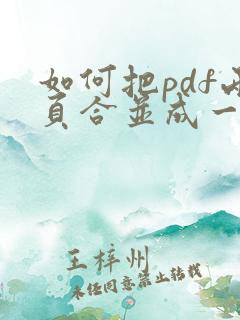 如何把pdf
页合并成一
王梓州
未经同意禁止转载